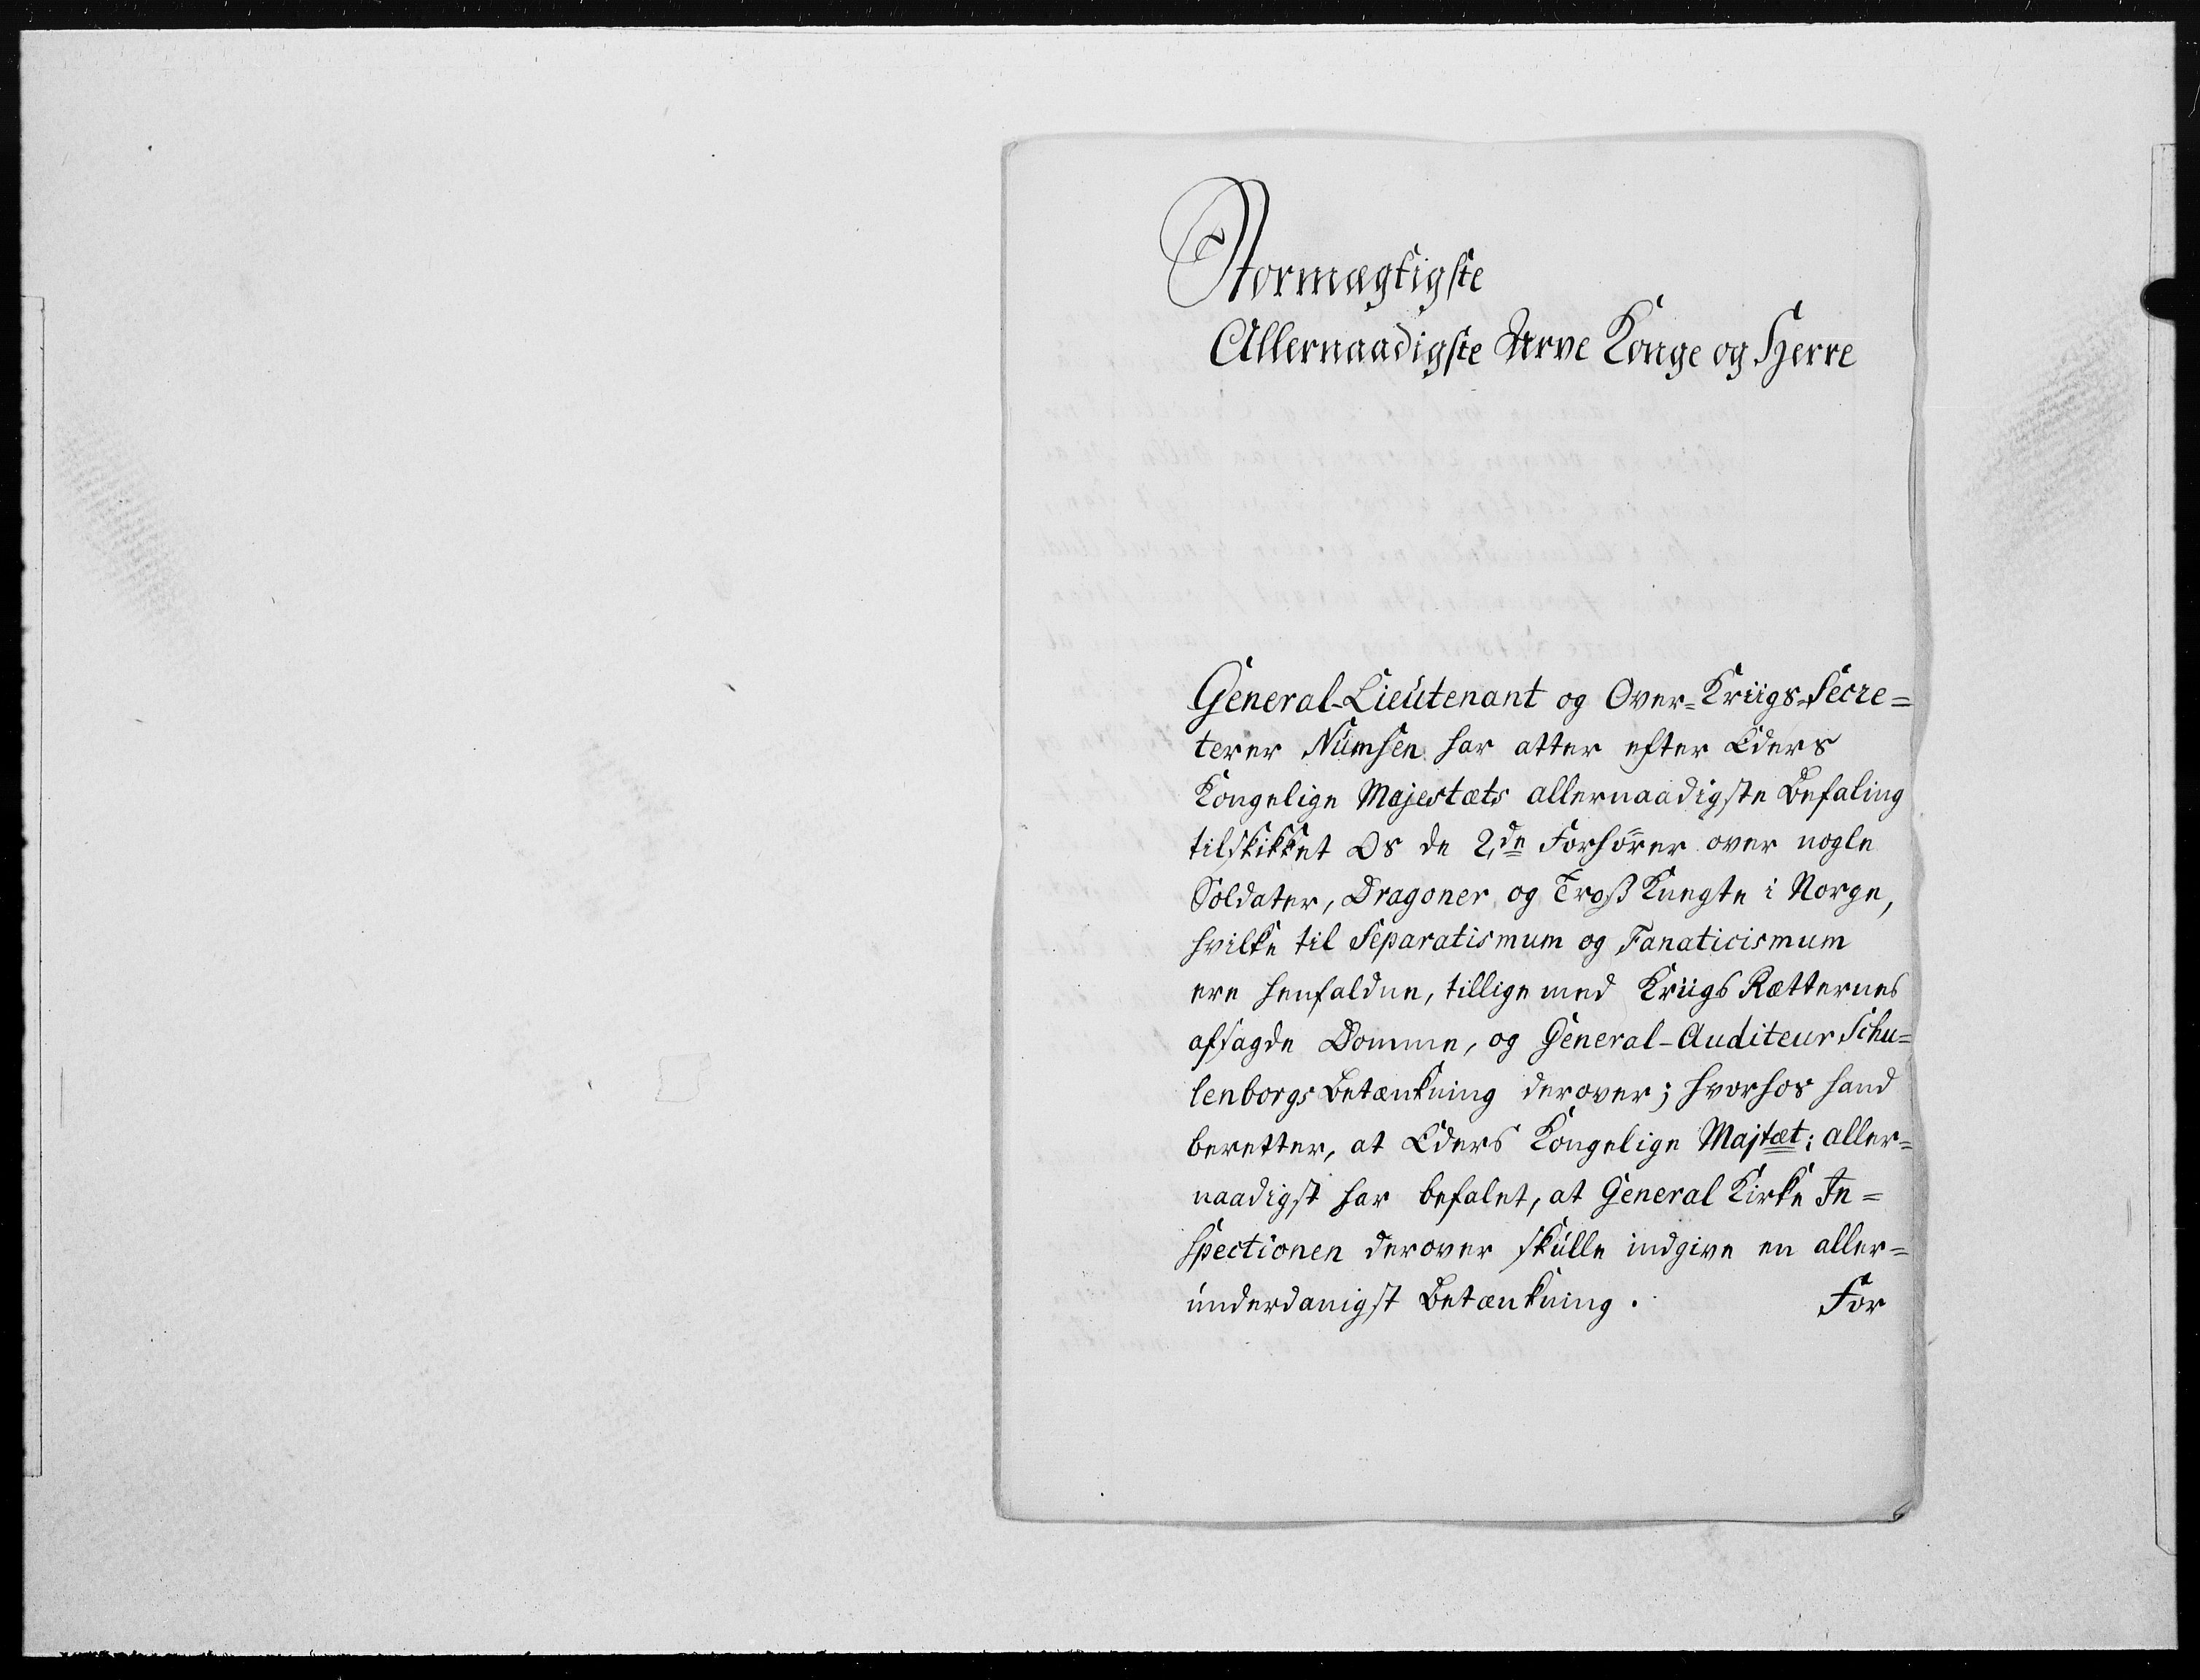 Stormægtigste
Allernaadigste Arve Konge og Herre
General-Lieutenant og Over-Kriigs-Secre=
terer Numsen har atter efter Eders
Kongelige Majestæts allernaadigste Befaling
tilskikket Os de 2de Forhörer over nogle
Soldater, Dragoner og Troß Knegte i Norge,
hvilke til Separatismum og Fanaticismum
ere henfaldne, tillige med Kriigs Rætternes
afsagde Domme, og General-Auditeur Schu=
lenborgs Betænkning derover; hvorhos hand
beretter, at Eders Kongelige Majtæt: aller=
naadigst har befalet, at General Kirke In=
spectionen derover skulle indgive en aller=
underdanigst Betænkning.
For